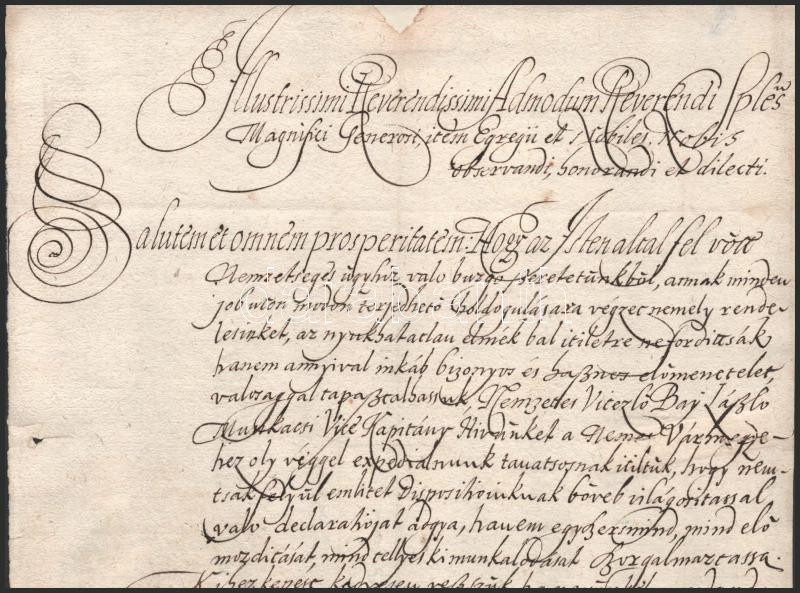 Illustrissimi Reverendissimi Admodum Reverendi Sples
Magnifici Generosi, item Egregii et Nobiles. Nobis
observandi, honorandi et dilecti.
Salutem et omnem prosperitatem. Hogy az Isten altal fel vött
Nemzetseges ügyhöz valo buzgo szeretetünkböl, annak minden
jobb uton modon terjedhetö boldogulására végzet nemely rende-
lesinket, az elmék bal itiletre ne fordittsák
hanem annyival inkáb bizonyos és hasznos elömenetelet,
valosaggal tapasztalhassuk Nemzetes Vitezlö Bay László
Munkacsi Vice Kapitány Hivünket a Nemes Vármegye-
hez oly véggel expedialnunk tavatsosnak itiltük, hogy nem-
tsak fellyül emlitet Dispositioinknak böveb világositassal
valo declaratioját adgya, hanem egyszersmind, mind elö
mozditását, mind tellyes ki munkalodását szorgalmaztassa.
Kihez kepest